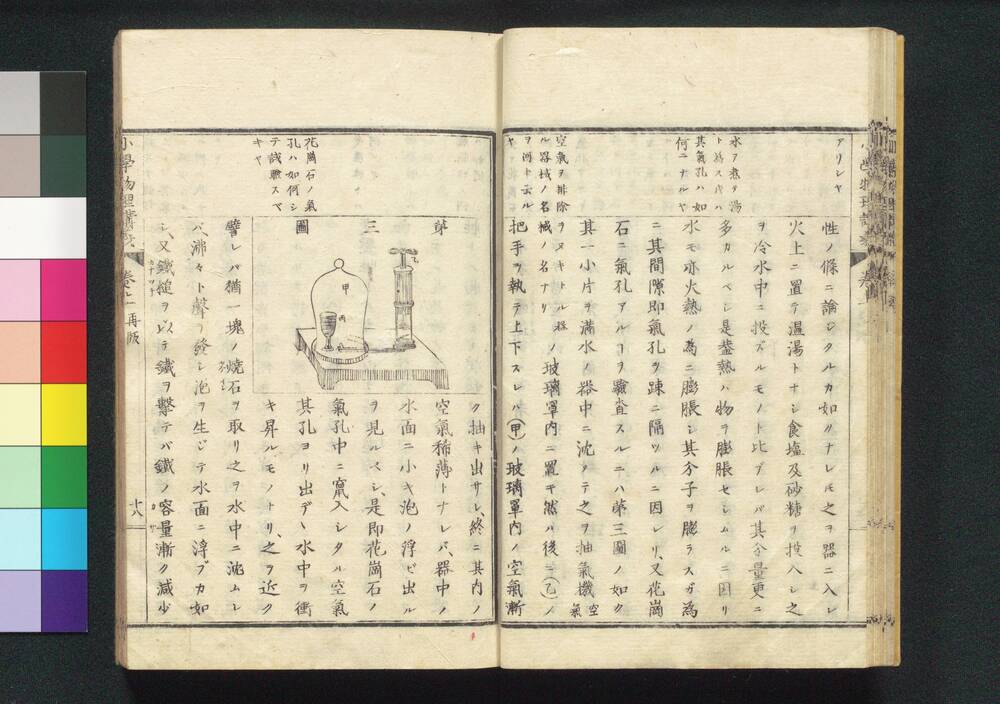 アリシヤ
水ヲ熱ク湯
ト為ス時ハ
其氣孔ハ如
何ニナルヤ
空氣ヲ排除
スル器械ノ名
ヲ何ト云ル
ヤ
性ノ條ニ論ジタルカ如クナレ𪜈之ヲ器ニ入レ
火上ニ置テ温湯トナシ食塩及砂糖ヲ投入シ之
ヲ冷水中ニ投ズルモノト比ブレバ其分量更ニ
多カルベシ是蓋熱ハ物ヲ膨脹セシムルニ因リ
水モ亦火熱ノ為ニ膨脹シ其分子ヲ膨ラスガ為
ニ其間隙即氣孔ヲ疎ニ隔ツルニ因レリ、又花崗
石ニ氣孔アルヿヲ驗査スルニハ第三圖ノ如ク
其一小片ヲ滿水ノ器中ニ沈メテ之ヲ抽氣機空氣
ヲヌキトル器械ノ名ナリノ玻璃罩内ニ置キ然ル後ニ(乙)ノ
把手ヲ執テ上下スレバ(甲)ノ玻璃罩内ノ空氣漸
花崗石ノ氣
孔ハ如何シ
テ試驗スベ
キヤ
ク抽キ出サレ、終ニ其内ノ
空氣稀薄トナレバ、器中ノ
水面ニ小キ泡ノ浮ビ出ル
ヲ見ルベシ、是即花崗石ノ
氣孔中ニ竄入シタル空氣
其孔ヨリ出デヽ水中ヲ衝
キ昇ルモノナリ、之ヲ近ク
第三圖
甲
乙
丙
譬レバ猶一塊ノ燒石ヲ取リ之ヲ水中ニ沈ムレ
バ、沸々ト聲ヲ發シ泡ヲ生ジテ水面ニ浮ブカ如
シ、又鐵槌ヲ以テ鐵ヲ擊テバ鐵ノ容量漸ク減少
小學物理講義
卷之一
再版
十八